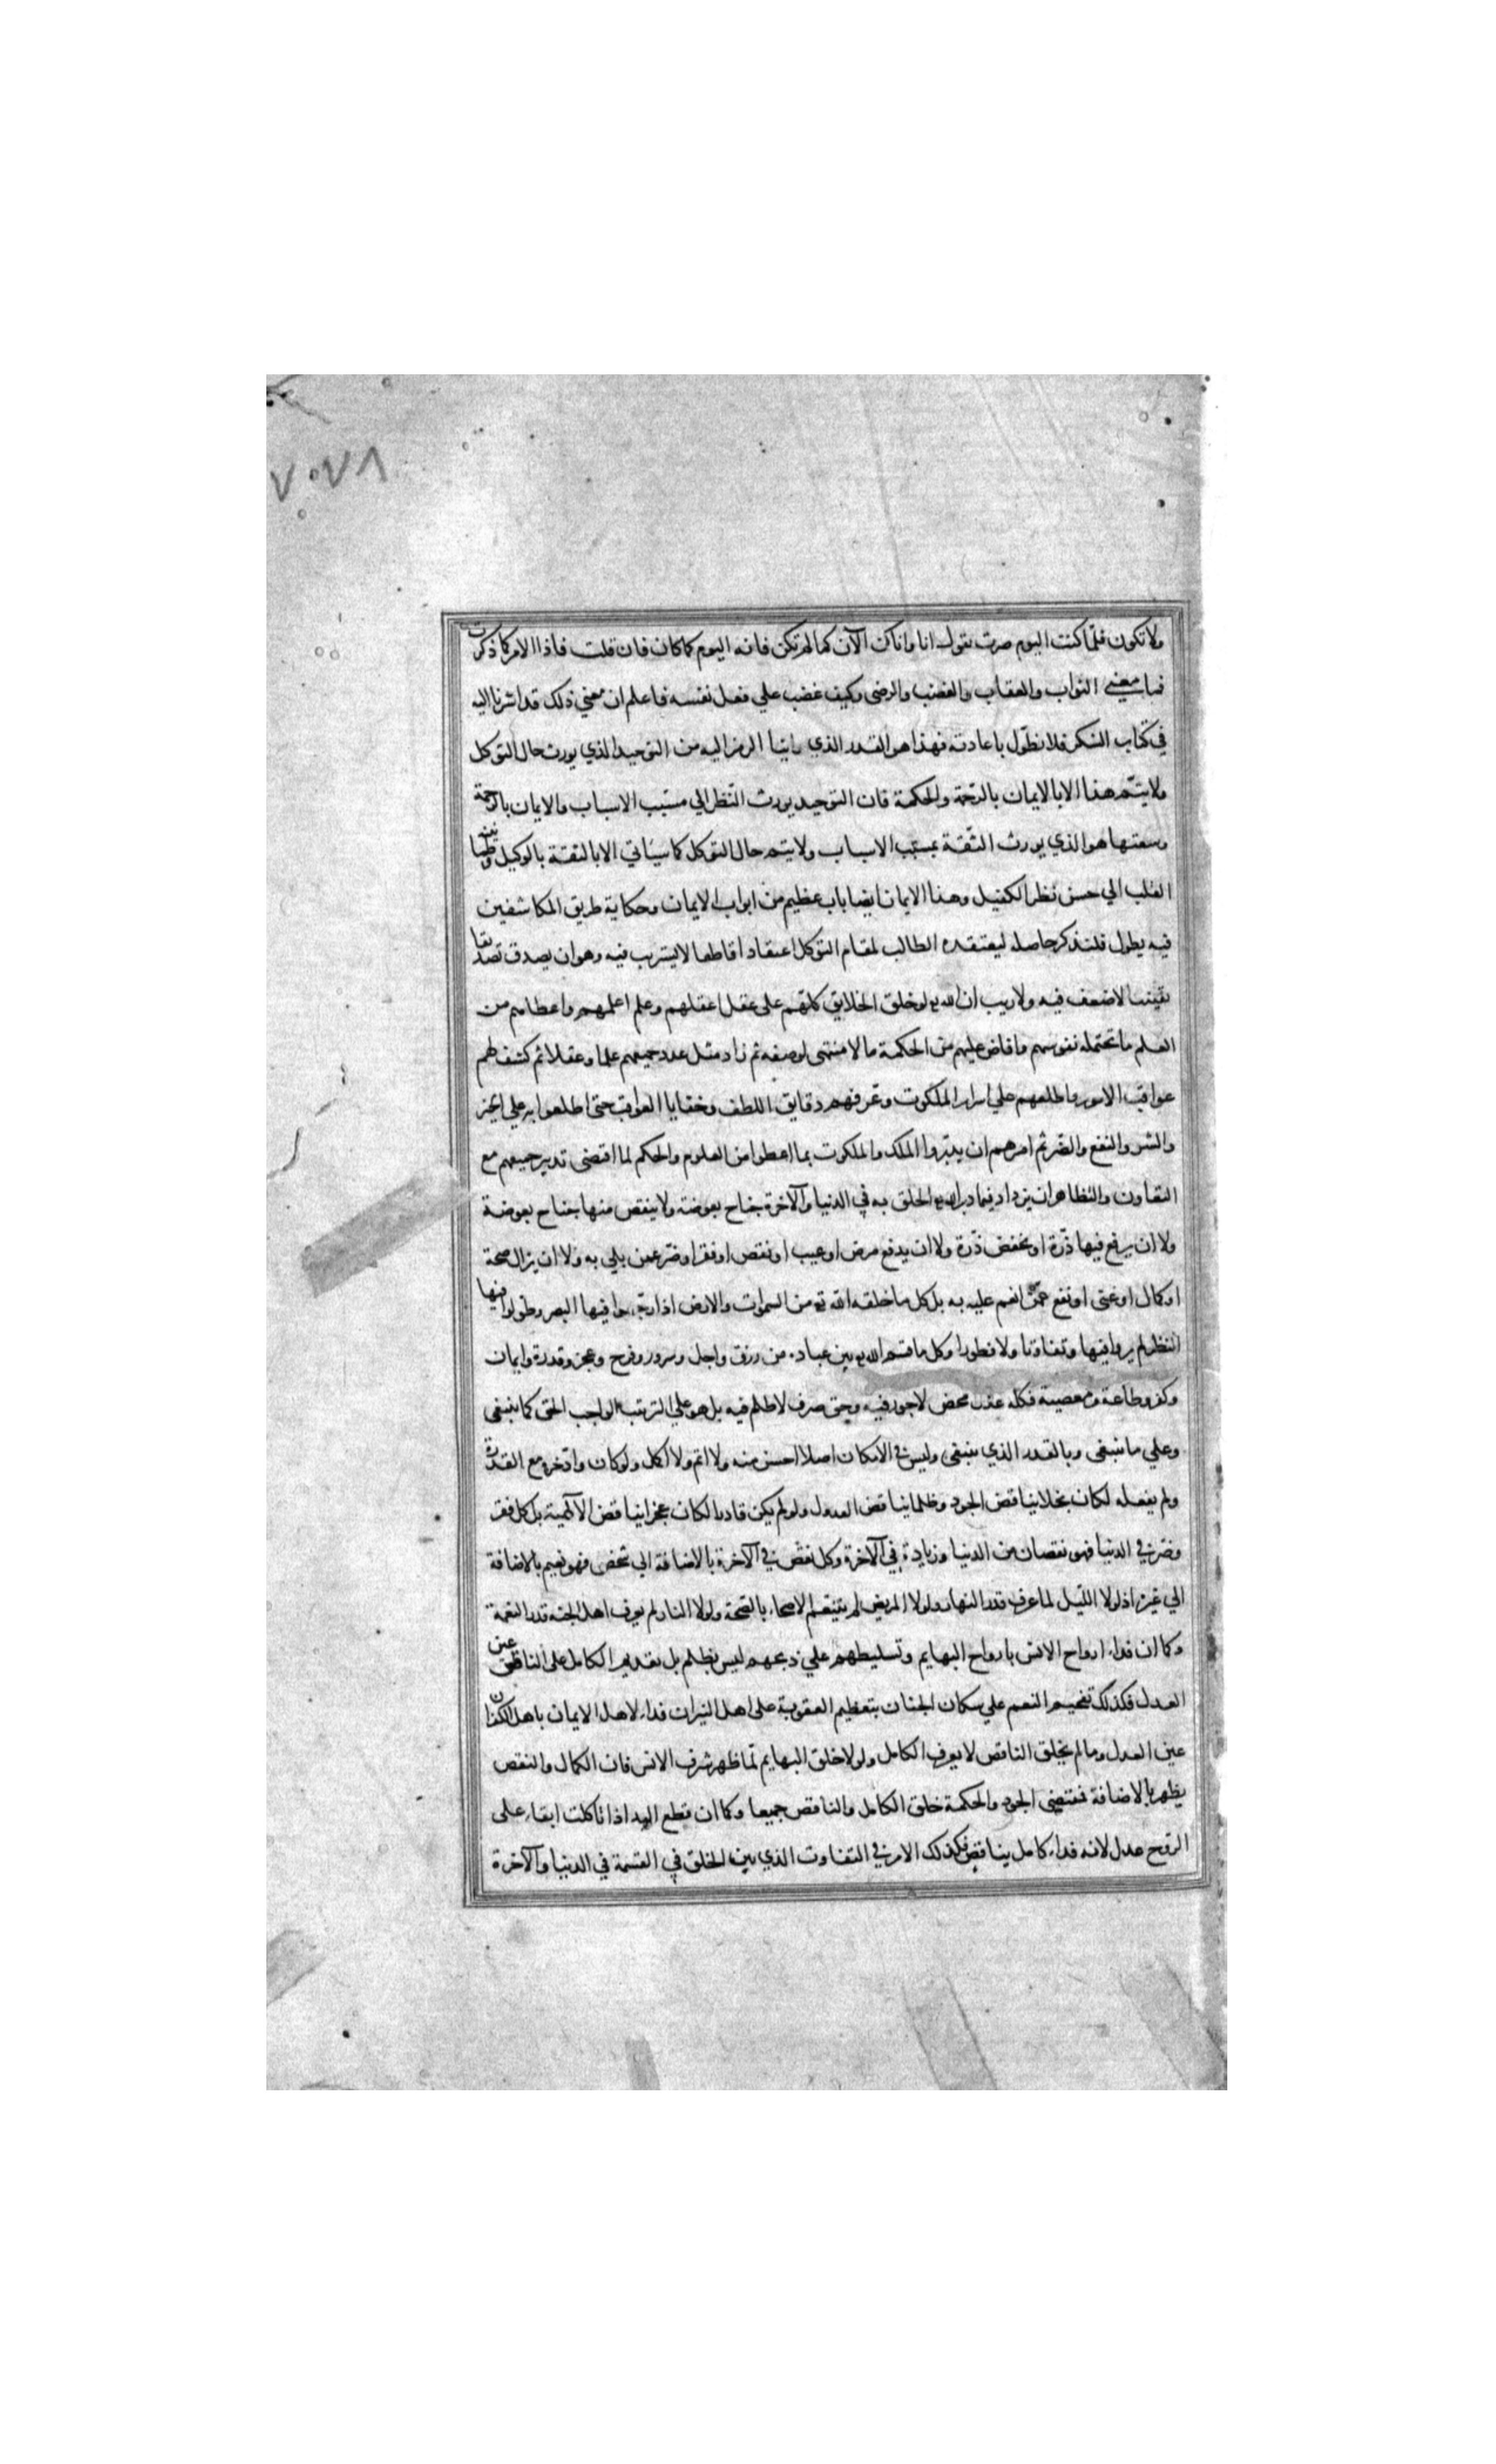 ٧٠٧٨
ولا تكون فلما كنت اليوم صرت تقول انا وانا كن الآن كما لم تكن فانه اليوم كما كان فان قلت فاذا الامر كما ذكرت
فما معني الثواب والعقاب والغضب والرضى وكيف غضب علي فعل نفسه فاعلم ان معني ذلك قد اشرنا اليه
في كتاب الشكر فلا نطوّل باعادته فهذا هو القدر الذي رايتا الرمز اليه من التوحيد الذي يورث حال التوكل
ولا يتم هذا الا بالايمان بالرحمة والحكمة فان التوحيد يورث النظر الي مسبب الاسباب والايمان بالرحمة
وسعتها هو الذي يورث الثقة بمسبب الاسباب ولا يتم حال التوكل كما سياتي الا بالثقة بالوكيل وطمانينة
القلب الي حسن نظر الكفيل وهذا الايمان ايضا باب عظيم من ابواب الايمان وحكاية طريق المكاشفين
فيه يطول فلنذكر حاصله ليعتقده الطالب لمقام التوكل اعتقادا قاطعا لا يستريب فيه وهو ان يصدق تصديقا
يقينيا لا ضعف فيه ولا ريب ان الله لو خلق الخلايق كلهم على عقل اعقلهم وعلم اعلمهم واعطاهم من
العلم ما تحتمله نفوسهم وافاض عليهم من الحكمة ما لا منتهى لوصفه ثم زاد مثل عدد جميعهم علما وعقلا ثم كشف لهم
عواقب الامور واطلعهم علي اسرار الملكوت وعرفهم دقايق اللطف وخفايا العواقب حتى اطلعوا به علي الخير
والشر والنفع والضر ثم امرهم ان يدبّروا الملك والملكوت بما اعطوا من العلوم والحكم لما اقتضى تدبير جميعهم مع
التعاون والتظاهر ان يزداد فيما دبر الله الخلق به في الدنيا والآخرة جناح بعوضة ولا ينقص منها جناح بعوضة
ولا ان يرفع فيها ذرّة او يخفض ذرّة ولا ان يدفع مرض او عيب او نقص او فقر او ضر عمن بلي به ولا ان يزال صحة
او كمال او غنى او نفع عمن انعم عليه به بل كل ما خلقه الله من السموات والارض اذا رجعوا فيها البصر وطولوا فيها
النظر لم يروا فيها وتفاوتا ولا فطورا وكل ما قسم الله بين عباده من رزق واجل وسرور وفرح وعجز وقدرة وايمان
وكفر وطاعة ومعصية فكله عدل محض لا جور فيه وحق صرف لا ظلم فيه بل هو علي الترتيب الواجب الحق كما ينبغى
وعلي ما ينبغى وبالقدر الذي ينبغى وليس في الامكان اصلا احسن منه ولا اتم ولا اكمل ولو كان وادّخره مع القدرة
ولم يفعله لكان بخلا يناقض الجود وظلما يناقض العدل ولو لم يكن قادرا لكان عجزا يناقض الآلهية بل كل فقر
وضر في الدنيا فهو نقصان من الدنيا وزيادة في الآخرة وكل نقص في الآخرة بالاضافة الي شخص فهو نعيم بالاضافة
الي غيره اذ لولا الليل لما عرف قدر النهار ولولا المريض لم يتنعم الاصحاء بالصحة ولولا النار لم يعرف اهل الجنة قدر النعمة
وكما ان فداء ارواح الانس بارواح البهايم وتسليطهم علي ذبحهم ليس بظلم بل تقديم الكامل على الناقص عين
العدل فكذلك تفخيم النعم علي سكان الجنان بتعظيم العقوبة على اهل النيران فداء لاهل الايمان باهل الكفران
عين العدل وما لم يخلق الناقص لا يعرف الكامل ولولا خلق البهايم لما ظهر شرف الانس فان الكمال والنقص
يظهر بالاضافة فمقتضى الجود والحكمة خلق الكامل والناقص جميعا وكما ان قطع اليد اذا تاكلت ابقاء على
الروح عدل لانه فداء كامل بناقص فكذلك الامر في التفاوت الذي بين الخلق في القسمة في الدنيا والآخرة